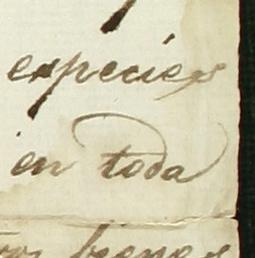 especies
en toda
bienes